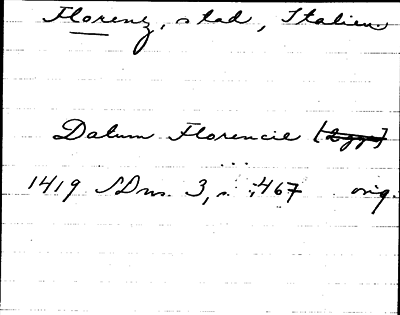 Florenz, stad, Italien
Datum Florencie
1419 SDns. 3, s. 467 orig.